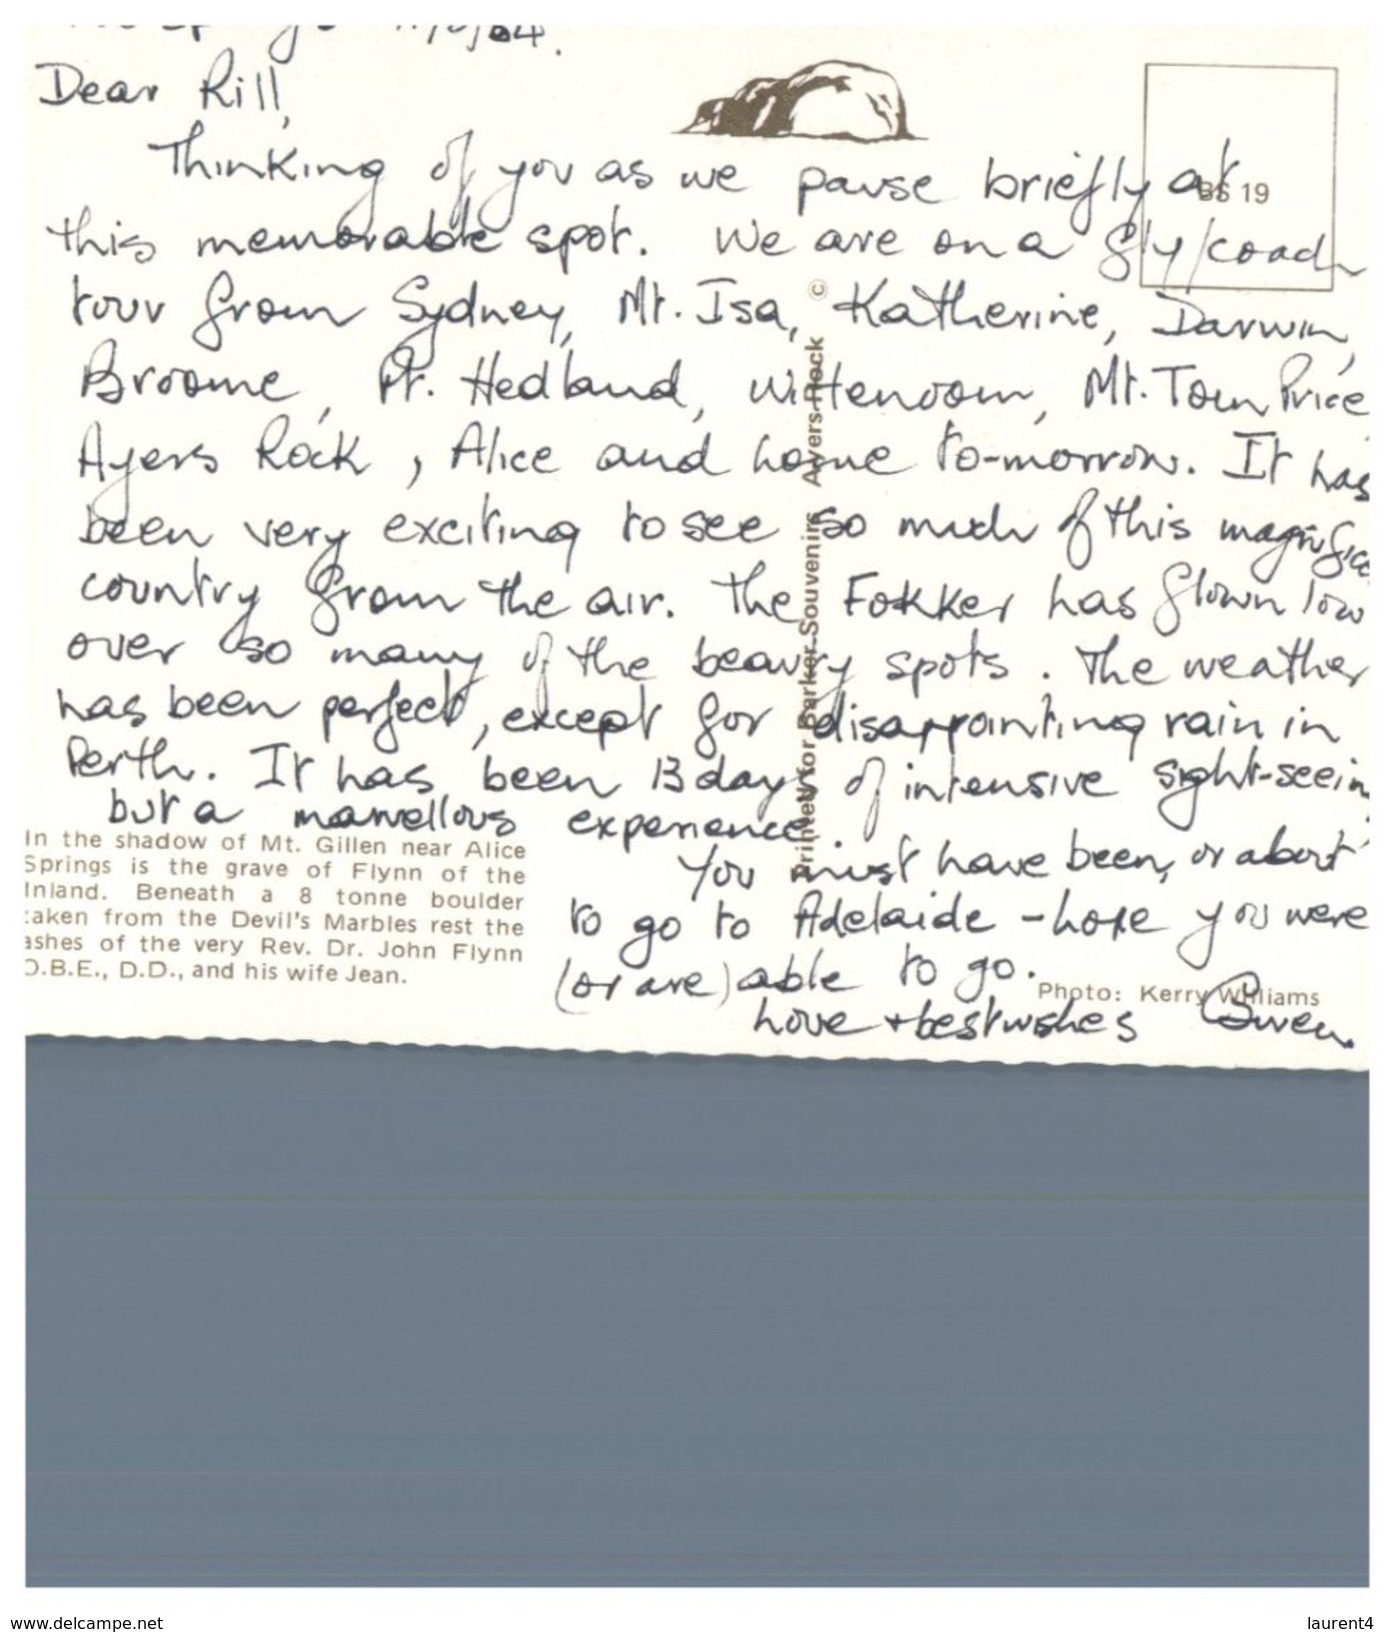 Dear Rill,
Thinking of you as we pause briefly at
this memorable spot. We are on a fly/coach
tour from Sydney, Mt. Isa, Katherine, Darwin,
Broome, Pt. Hedland, Wittenoom, Mt. Tom Price
Ayers Rock, Alice and home to-morrow. It has
been very exciting to see so much of this magnifice
country from the air. The Fokker has flown low
over so many of the beauty spots. The weather
has been perfect, except for disappointing rain in
Perth. It has been 13 days of intensive sight-seein
but a marvellous experience.
You must have been, or about
to go to Adelaide - hope you were
(or are) able to go.
Love + best wishes Gwen.
BS 19
Printed for Barker Souvenirs Ayers Rock ©
In the shadow of Mt. Gillen near Alice
Springs is the grave of Flynn of the
Inland. Beneath a 8 tonne boulder
taken from the Devil's Marbles rest the
ashes of the very Rev. Dr. John Flynn
O.B.E., D.D., and his wife Jean.
Photo: Kerry Williams
www.delcampe.net
laurent4